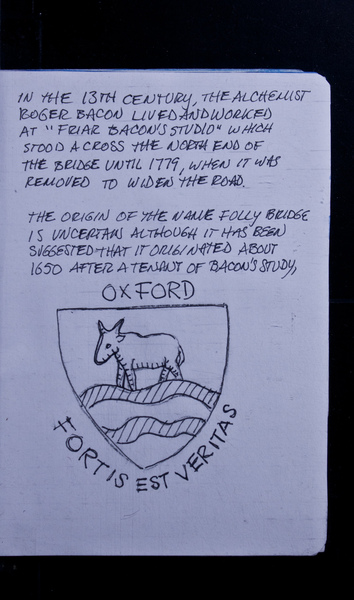 IN THE 13TH CENTURY, THE ALCHEMIST
ROGER BACON LIVED AND WORKED
AT "FRIAR BACON'S STUDIO" WHICH
STOOD ACROSS THE NORTH END OF
THE BRIDGE UNTIL 1779, WHEN IT WAS
REMOVED TO WIDEN THE ROAD.
THE ORIGIN OF THE NAME FOLLY BRIDGE
IS UNCERTAIN ALTHOUGH IT HAS BEEN
SUGGESTED THAT IT ORIGINATED ABOUT
1650 AFTER A TENANT OF BACON'S STUDY,
OXFORD
FORTIS EST VERITAS